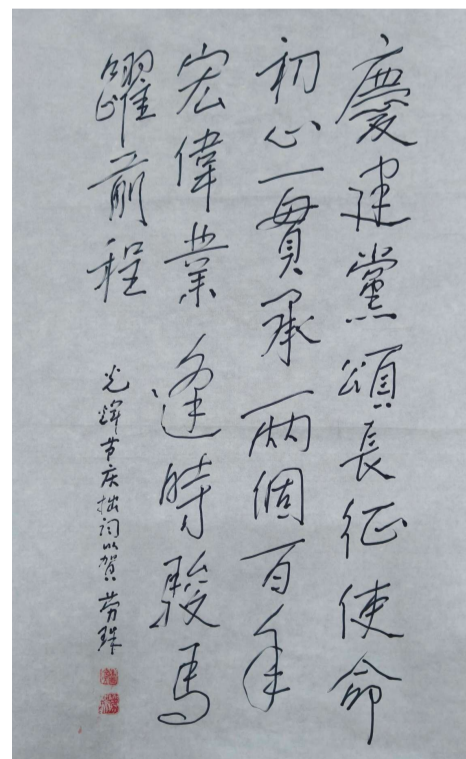 慶建黨頌長征使命
初心一貫承兩個百年
宏偉業逢時駿馬
躍前程
光輝节庆拙词以贺 芳珠